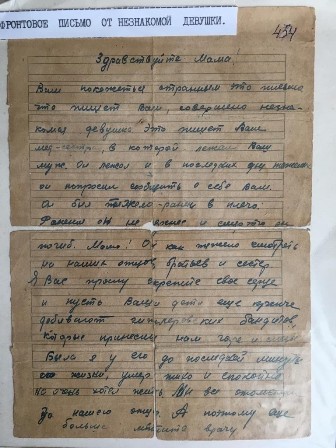 ФРОНТОВОЕ ПИСЬМО ОТ НЕЗНАКОМОЙ ДЕВУШКИ.
454
Здравствуйте Мама!
Вам покажеться странным это письмо
что пишет Вам, совершено незна-
комая девушка. Это пишет Вам
мед-сестра, в которой лежал Ваш
муж. Он лежал и в последних
он попросил сообщить о себе Вам.
А был тяжело ранен в плечо.
Ранения
погиб. Мама! Ох как тяжело смотреть
на наших отцов, братьев и сестер
Я Вас прошу скрепите свое сердце
и пусть Ваши дети еще крепче
добивают гитлеровских бандитов,
которые принесли нам горе и
Была я у его до последней минуты
его жизни умер тихо и спокойно
Но очень хотел жить. Мы все отомстим
За нашего отца. А поэтому еще
больше мстить врагу